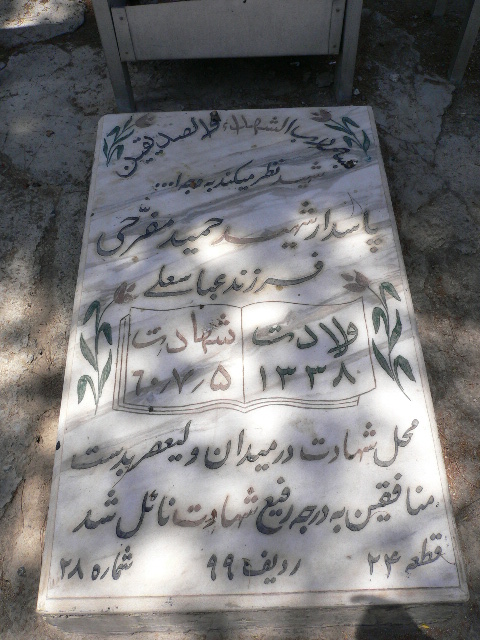 بسم رب الشهداء والصدیقین
شهید نظر میکند به وجه ا...
پاسدار شهید حمید مفرّحی
فرزند عباسعلی
ولادت شهادت
۱۳۳۸ ۶۰٫۷٫۵
محل شهادت در میدان ولیعصر بدست
منافقین به درجه رفیع شهادت نائل شد
قطعه ۲۴ ردیف ۹۹ شماره ۲۸